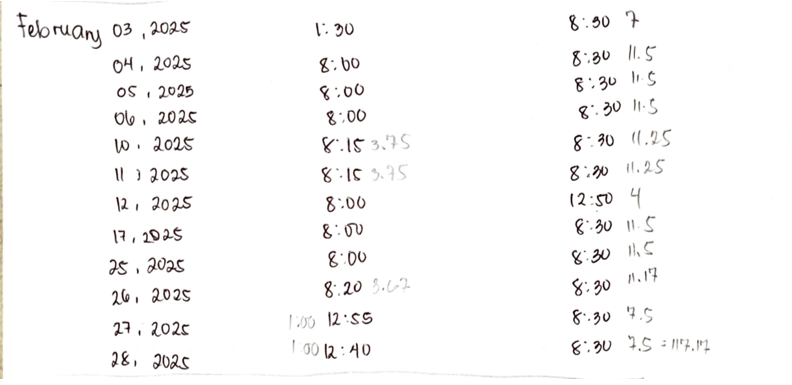 February 03, 2025 1:30 8:30 7
04, 2025 8:00 8:30 11.5
05, 2025 8:00 8:30 11.5
06, 2025 8:00 8:30 11.5
10, 2025 8:15 3.75 8:30 11.25
11, 2025 8:15 3.75 8:30 11.25
12, 2025 8:00 12:50 4
17, 2025 8:00 8:30 11.5
25, 2025 8:00 8:30 11.5
26, 2025 8:20 3.67 8:30 11.17
27, 2025 1:00 12:55 8:30 7.5
28, 2025 1:00 12:40 8:30 7.5 = 117.17